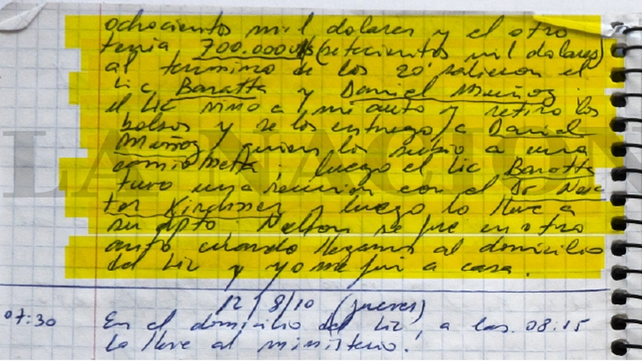 ochocientos mil dolares y el otro
tenia 700.000 u$s (setecientos mil dolares)
al termino de los 20' salieron el
Lic Baratta y Daniel Muñoz
el Lic vino a mi auto y retiro los
bolsos y se los entrego a Daniel
Muñoz, quien los subio a una
camioneta; luego el Lic Baratta
tuvo una reunion con el Dr Nes-
tor Kirchner y luego lo lleve a
su dpto. Nelson se fue en otro
auto cuando llegamos al domicilio
del Lic y yo me fui a casa.
12/8/10 (jueves)
07:30 En el domicilio del Lic, a las 08:15
lo lleve al ministerio.
LA NACION